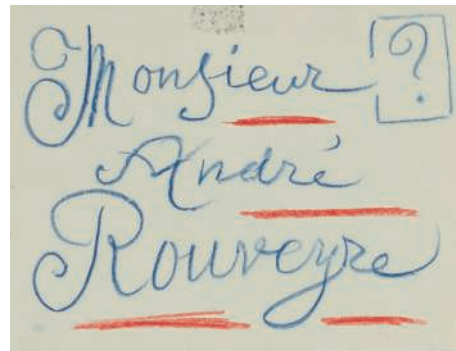 Monsieur ?
André
Rouveyre